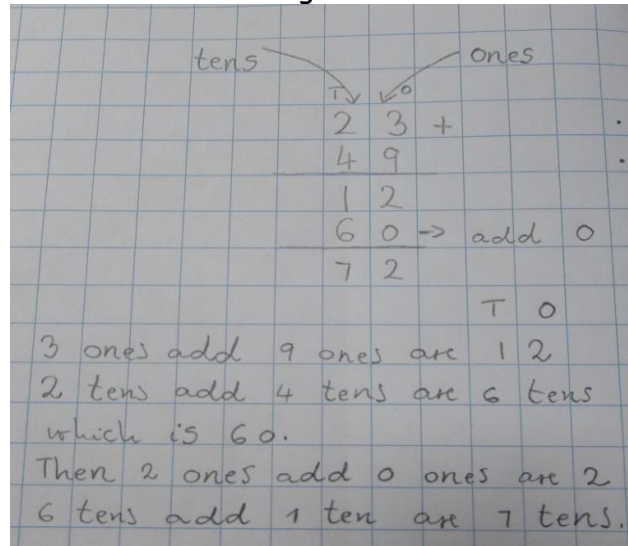 tens ones
T O
2 3 +
4 9
1 2
6 0 → add 0
7 2
T O
3 ones add 9 ones are 1 2
2 tens add 4 tens are 6 tens
which is 60.
Then 2 ones add 0 ones are 2
6 tens add 1 ten are 7 tens.